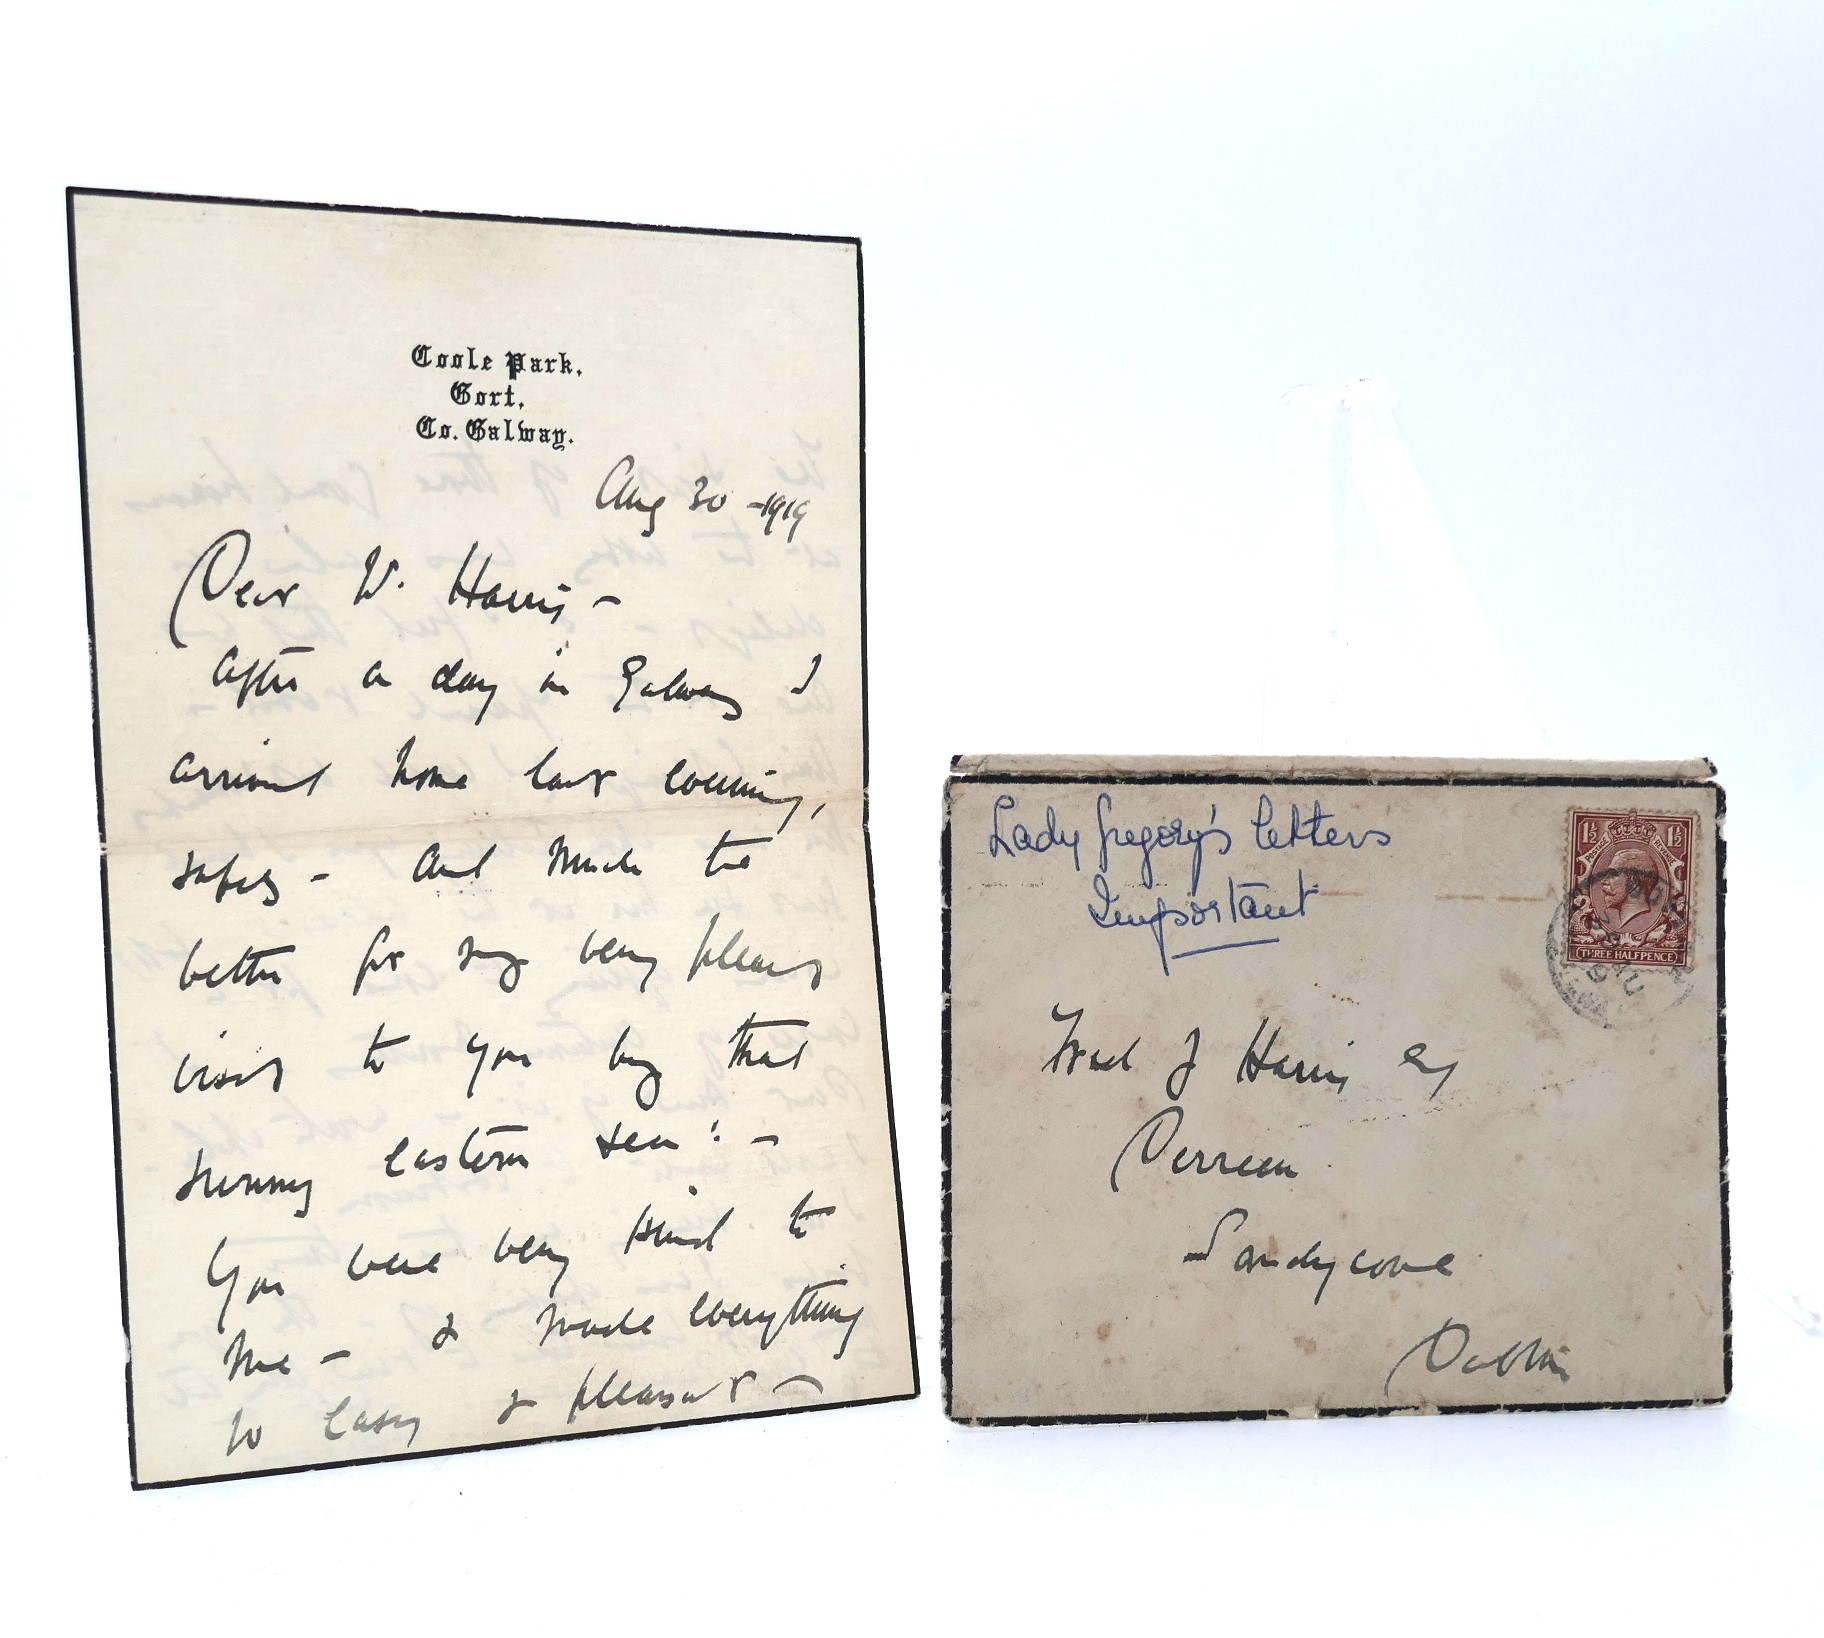 Coole Park,
Gort,
Co. Galway.
Aug 30 - 1919
Dear Mr. Harris -
After a day in Galway I
arrived home last evening,
safely - and much the
better for my very pleasant
visit to you by that
sunny eastern sea! -
You were very kind to
me - & made everything
so easy & pleasant -
Lady Gregory's letters
Important
1½ 1½
POSTAGE REVENUE
THREE HALFPENCE
Fred J Harris Esq
Derreen
Sandycove
Dublin